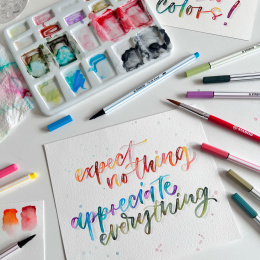 colors!
expect
nothing
appreciate
everything